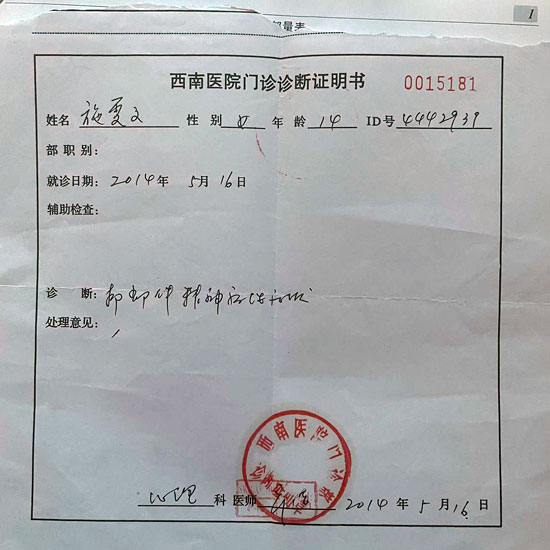 Ⅰ
西南医院门诊诊断证明书 0015181
姓名 施夏文 性别 女 年龄 14 ID号 4442939
部职别：
就诊日期：2014年5月16日
辅助检查：
诊断：抑郁伴精神
处理意见：
西南医院门诊部
心理 科 医师 2014年5月16日